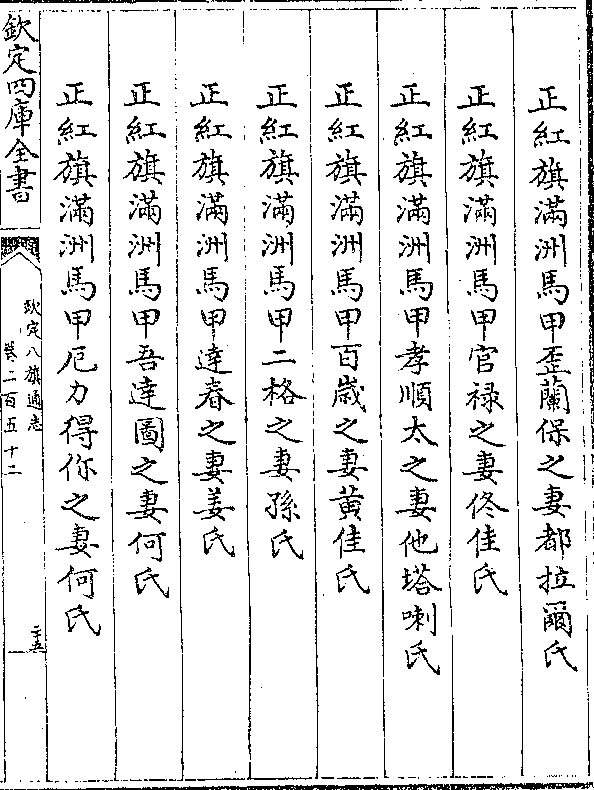 正紅旗滿洲馬甲歪蘭保之妻都拉爾氏
正紅旗滿洲馬甲官祿之妻佟佳氏
正紅旗滿洲馬甲孝順太之妻他塔喇氏
正紅旗滿洲馬甲百歲之妻黃佳氏
正紅旗滿洲馬甲二格之妻孫氏
正紅旗滿洲馬甲達春之妻姜氏
正紅旗滿洲馬甲吾達圖之妻何氏
正紅旗滿洲馬甲厄力得你之妻何氏
欽定四庫全書
欽定八旗通志
卷二百五十二
二十五